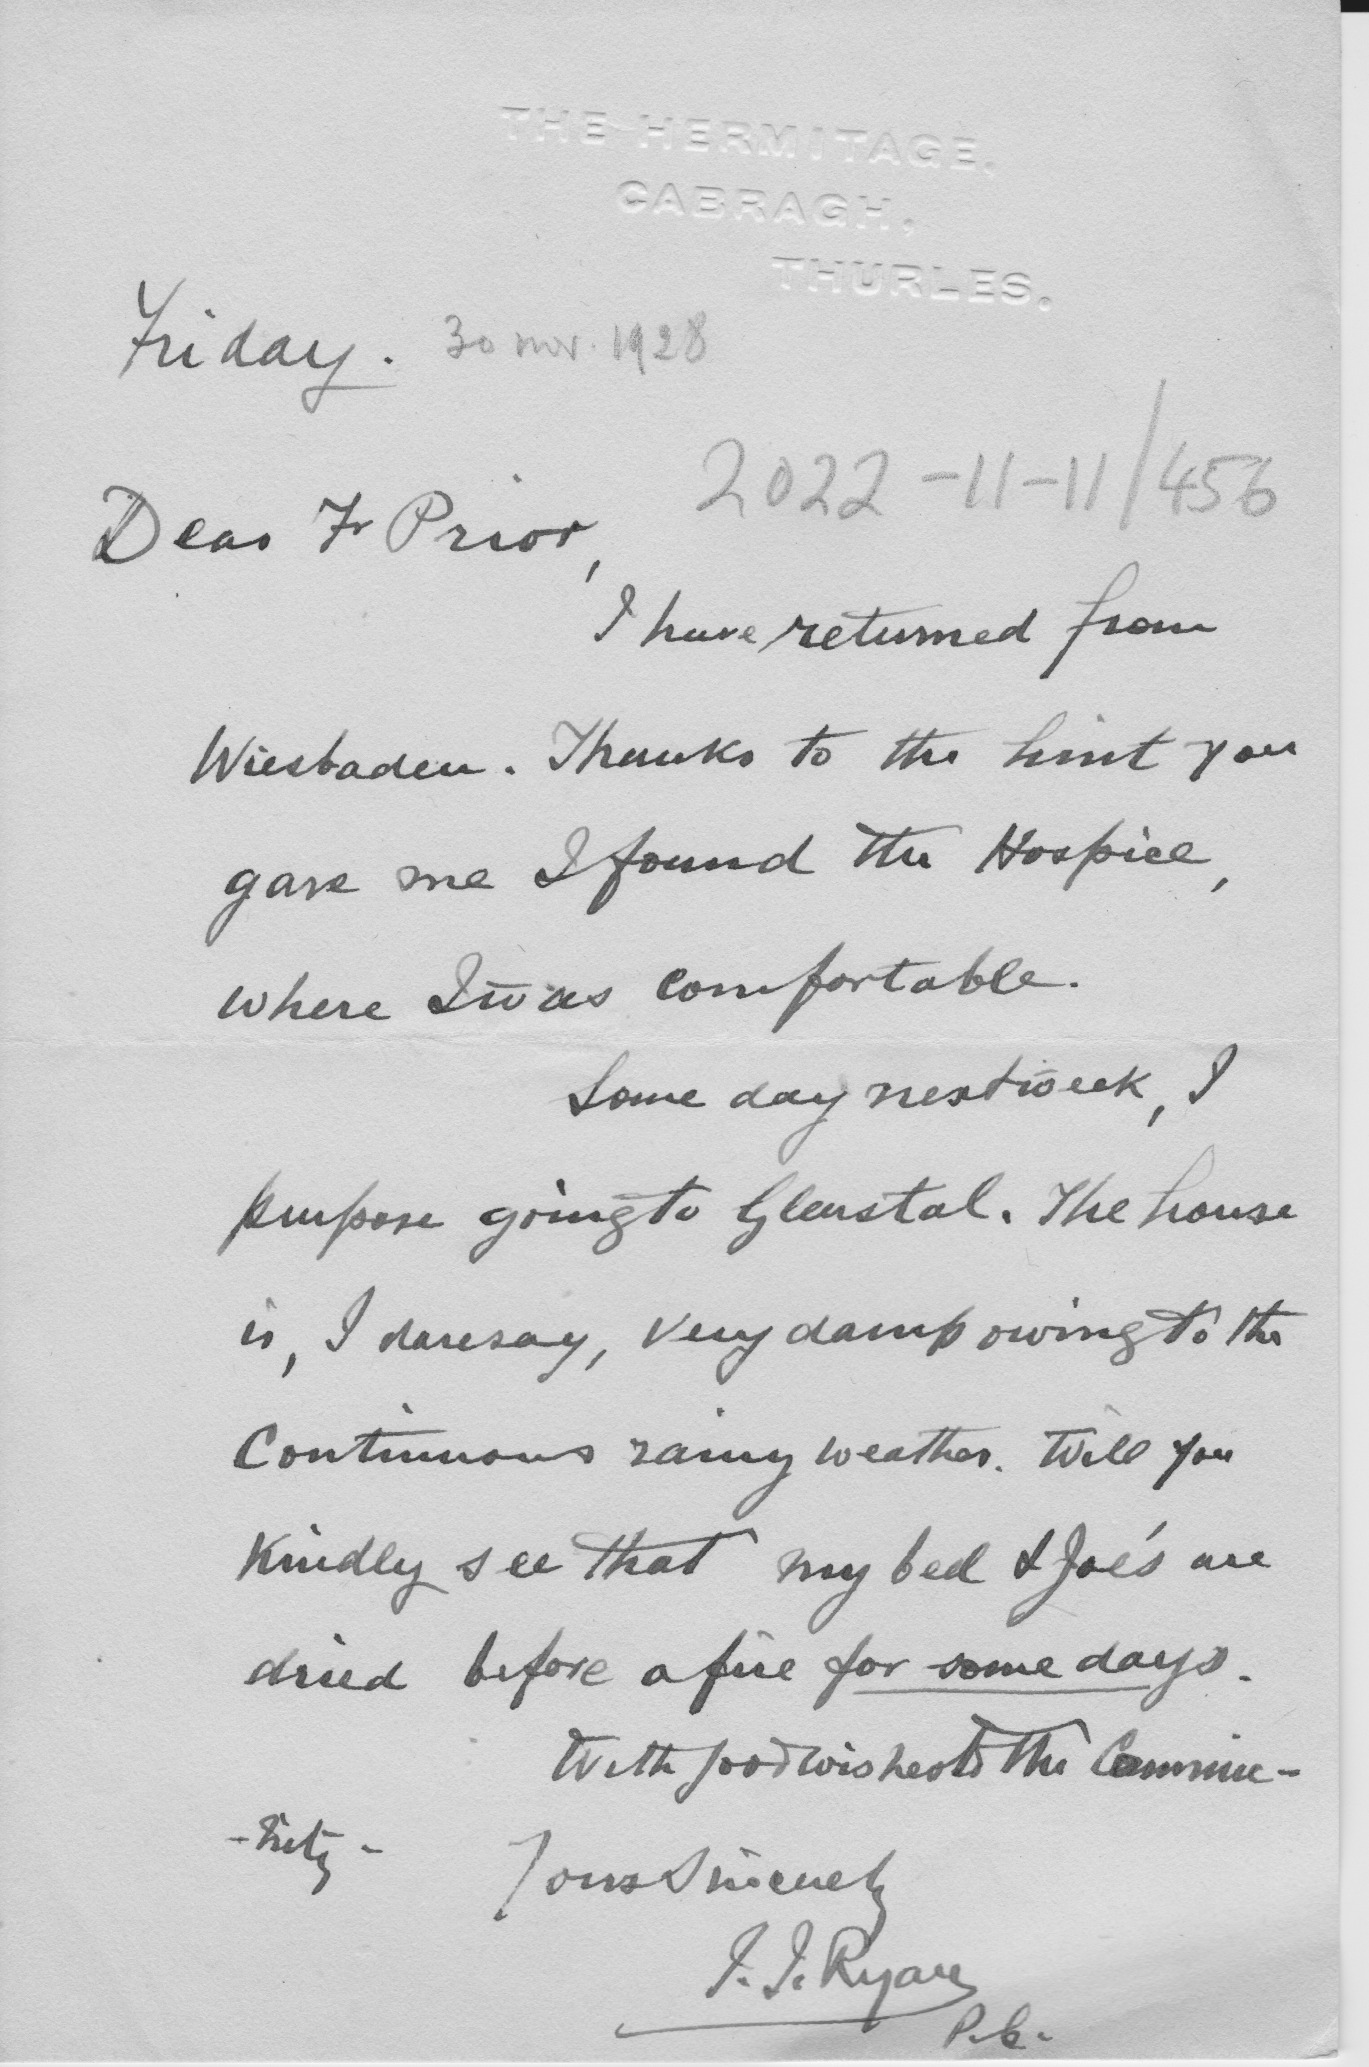 THE HERMITAGE,
CABRAGH,
THURLES.
Friday. 30 Nov. 1928
2022-11-11/456
Dear Fr Prior,
I have returned from
Wiesbaden. Thanks to the hint you
gave me I found the Hospice,
where I was comfortable.
Some day next week, I
purpose going to Glenstal. The house
is, I daresay, very damp owing to the
Continuous rainy weather. Will you
Kindly see that my bed & Joe's are
dried before a fire for some days.
With good wishes to the Commu-
-nity-
Yours Sincerely
J. J. Ryan
P.P.